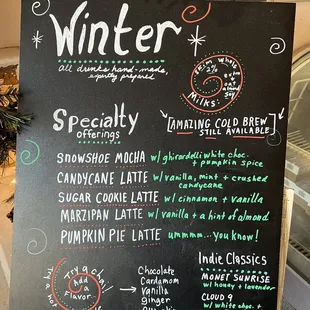 Winter
All drinks hand-made,
expertly prepared
Milks:
Specialty
offerings
[AMAZING COLD BREW
STILL AVAILABLE]
SNOWSHOE MOCHA w/ ghirardelli white choc.
+ pumpkin spice
CANDYCANE LATTE w/ vanilla, mint + crushed
candycane
SUGAR COOKIE LATTE w/ cinnamon + vanilla
MARZIPAN LATTE w/ vanilla + a hint of almond
PUMPKIN PIE LATTE ummm...you know!
Try a chai
Add a
Flavor
Chocolate
Cardamom
Vanilla
Ginger
Indie Classics
MONET SUNRISE
w/ honey + lavender
CLOUD 9
w/ white choc. +